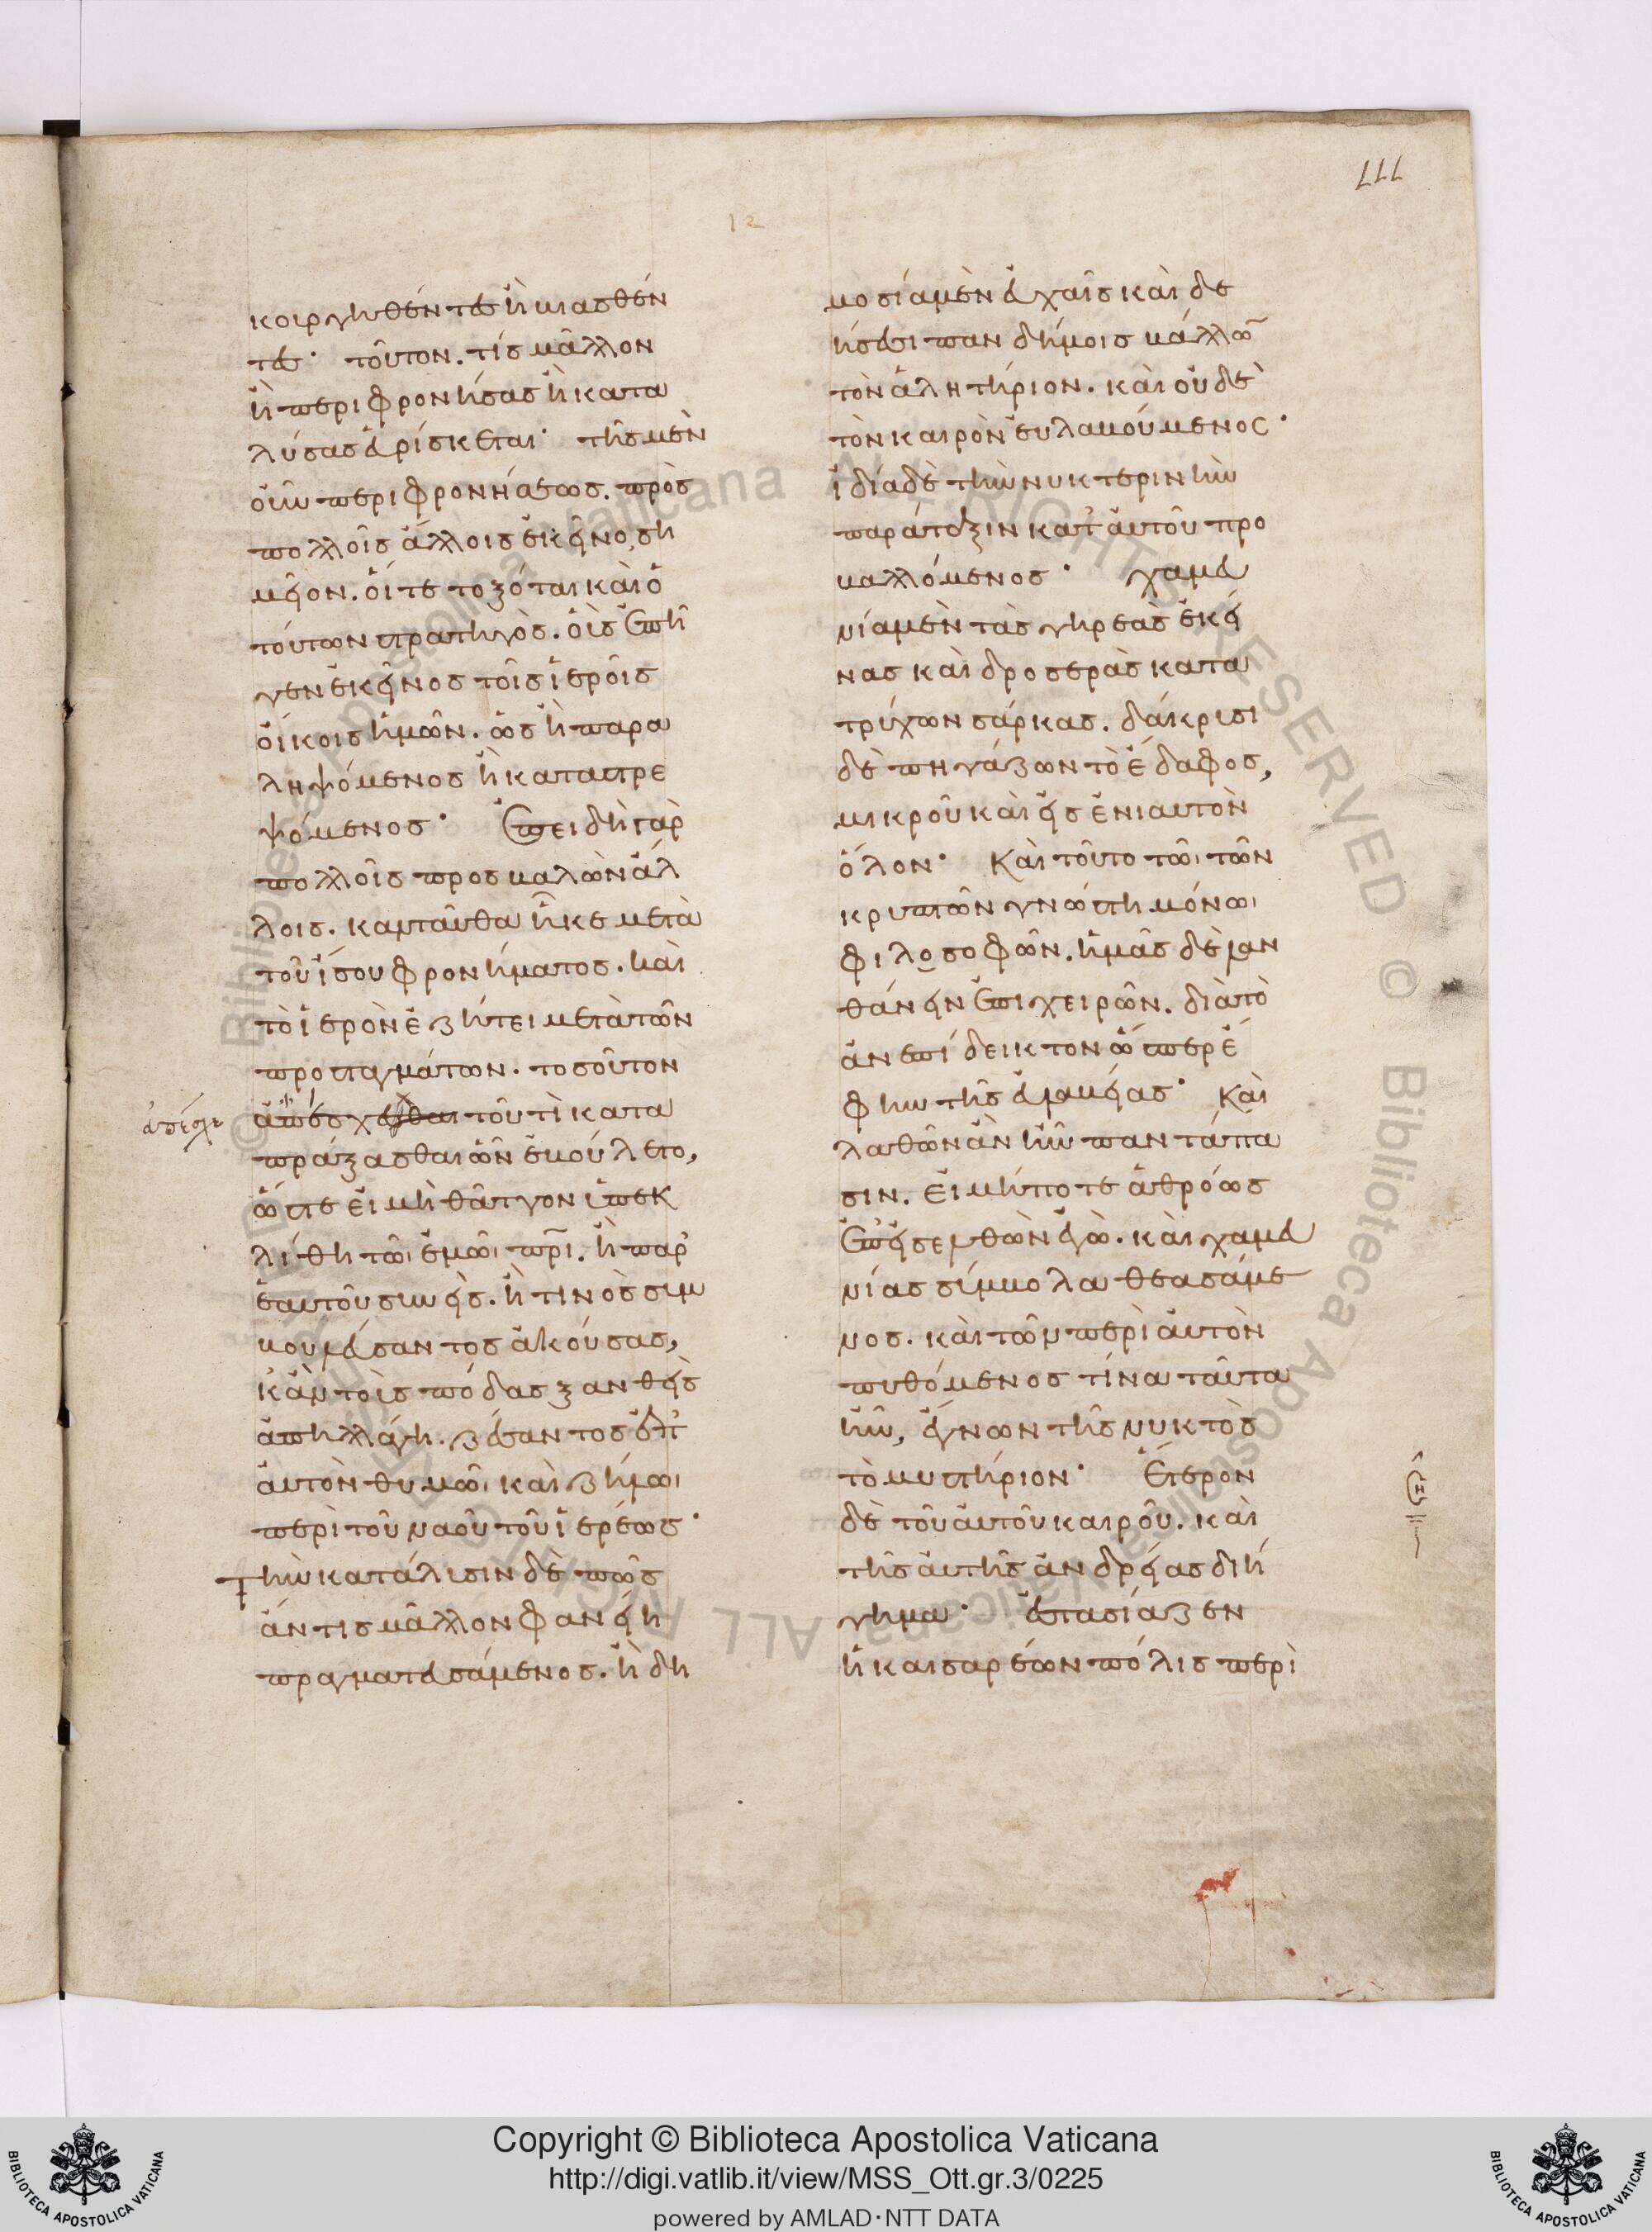 111
12
κουργηθέντες ἢ βιασθέν
τες· τοῦτον. τίς μᾶλλον
ἢ περιφρονήσας ἢ κατα
λύσας εὑρίσκεται· τῆς μὲν
οὖν περιφρονήσεως. πρὸς
πολλοῖς ἄλλοις ἐκεῖνο, ση
μεῖον. οἵ τε τοξόται καὶ ὁ
τούτων στρατηγὸς. οἷς ἐπῆ
γεν ἐκεῖνος τοῖς ἱεροῖς
οἴκοις ἡμῶν. ὡς ἢ παρα
ληψόμενος ἢ καταστρε
ψόμενος· Ἐπειδὴ γὰρ
πολλοῖς προσβαλὼν ἄλ
λοις. κἀνταῦθα ἧκε μετὰ
τοῦ ἴσου φρονήματος. καὶ
τὸ ἱερὸν ἐζήτει μετὰ τῶν
προσταγμάτων. τοσοῦτον
ἀπέσχε τοῦ τὶ κατα
ἀπέσχε
πράξασθαι ὧν ἐβούλετο,
ὥστε εἰ μὴ θᾶττον ὑπεκ
λίθη τῶι ἐμῶι πρι. ἢ παρ'
ἑαυτοῦ συνεὶς. ἢ τινὸς συμ
βουλεύσαντος ἀκούσας,
κἂν τοὶς πόδας ξανθεὶς
ἀπηλλάγη. ζέσαντος ἐπ'
αὐτὸν θυμῶι καὶ ζήλωι
περὶ τοῦ ναοῦ τοῦ ἱερέως·
Τὴν κατάλυσιν δὲ πῶς
ἄν τις μᾶλλον φανείη
πραγματευσάμενος. ἢ δη
μοσία μὲν εὐχαῖς καὶ δε
ήσεσι πανδήμοις βάλλων
τὸν ἀλητήριον. καὶ οὐδὲ
τὸν καιρὸν εὐλαβούμενος·
ἰδία δὲ τὴν νυκτερινὴν
παράταξιν κατ' αὐτοῦ προ
βαλλόμενος· χαμευ
νία μὲν τὰς γηρεὰς ἐκεί
νας καὶ δροσερὰς κατα
τρύχων σάρκας. δάκρυσι
δὲ πηγάζων τὸ ἔδαφος,
μικροῦ καὶ εἰς ἐνιαυτὸν
ὅλον· Καὶ τοῦτο τῶι τῶν
κρυπτῶν γνώστη μόνωι
φιλοσοφῶν. ἡμᾶς δὲ λαν
θάνειν ἐπιχειρῶν. διὰ τὸ
ἀνεπίδεικτον ὥσπερ ἔ
φην τῆς εὐλαβείας· Καὶ
λαθῶν ἂν ἦν παντάπα
σιν. εἰ μήποτε ἀθρόως
ἐπεισελθὼν ἐγὼ. καὶ χαμευ
νίας σύμβολα θεασάμε
νος. καὶ τῶν περὶ αὐτὸν
πυθόμενος τίνα ταῦτα
ἦν, ἔγνων τῆς νυκτὸς
τὸ μυστήριον· Ἕτερον
δὲ τοῦ αὐτοῦ καιροῦ. καὶ
τῆς αὐτῆς ἀνδρείας διή
γημα· ἐστασίαζεν
ἡ καισαρέων πόλις περὶ
Copyright © Biblioteca Apostolica Vaticana
http://digi.vatlib.it/view/MSS_Ott.gr.3/0225
powered by AMLAD·NTT DATA